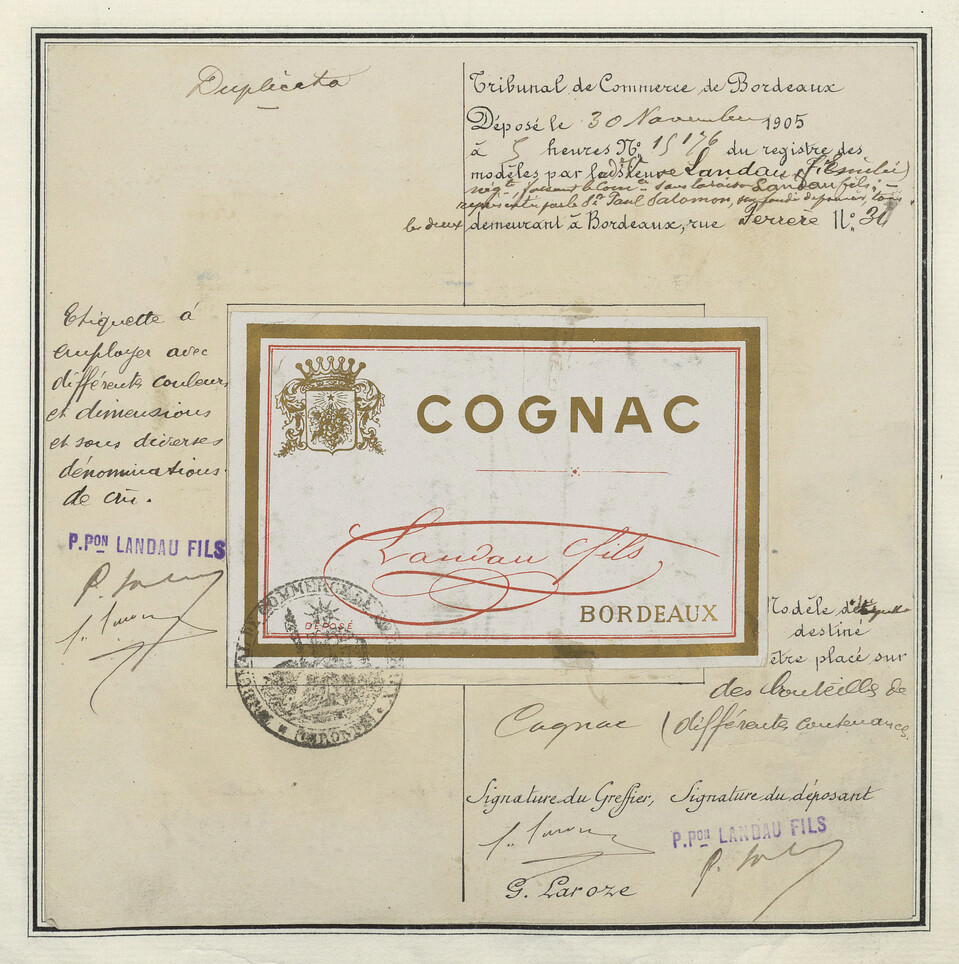 Duplicata
Tribunal de Commerce de Bordeaux
Déposé le 30 Novembre 1905
à 5 heures N° 15176 du registre des
modèles par Landau
négt sous la raison Landau fils,
représenté par le Sr Paul Salomon, son fondé de pouvoirs, tous
les deux demeurant à Bordeaux, rue Ferrère N° 31
Etiquette à
employer avec
différentes couleurs
et dimensions
et sous diverses
dénominations
de cru.
P.PON LANDAU FILS
COGNAC
Landau fils
DÉPOSÉ
BORDEAUX
TRIBUNAL DE COMMERCE DE BORDEAUX
(GIRONDE)
Modèle d'étiquette
destiné
être placé sur
des bouteilles de
Cognac (différentes contenances
Signature du Greffier, Signature du déposant
P.PON LANDAU FILS
G. Laroze